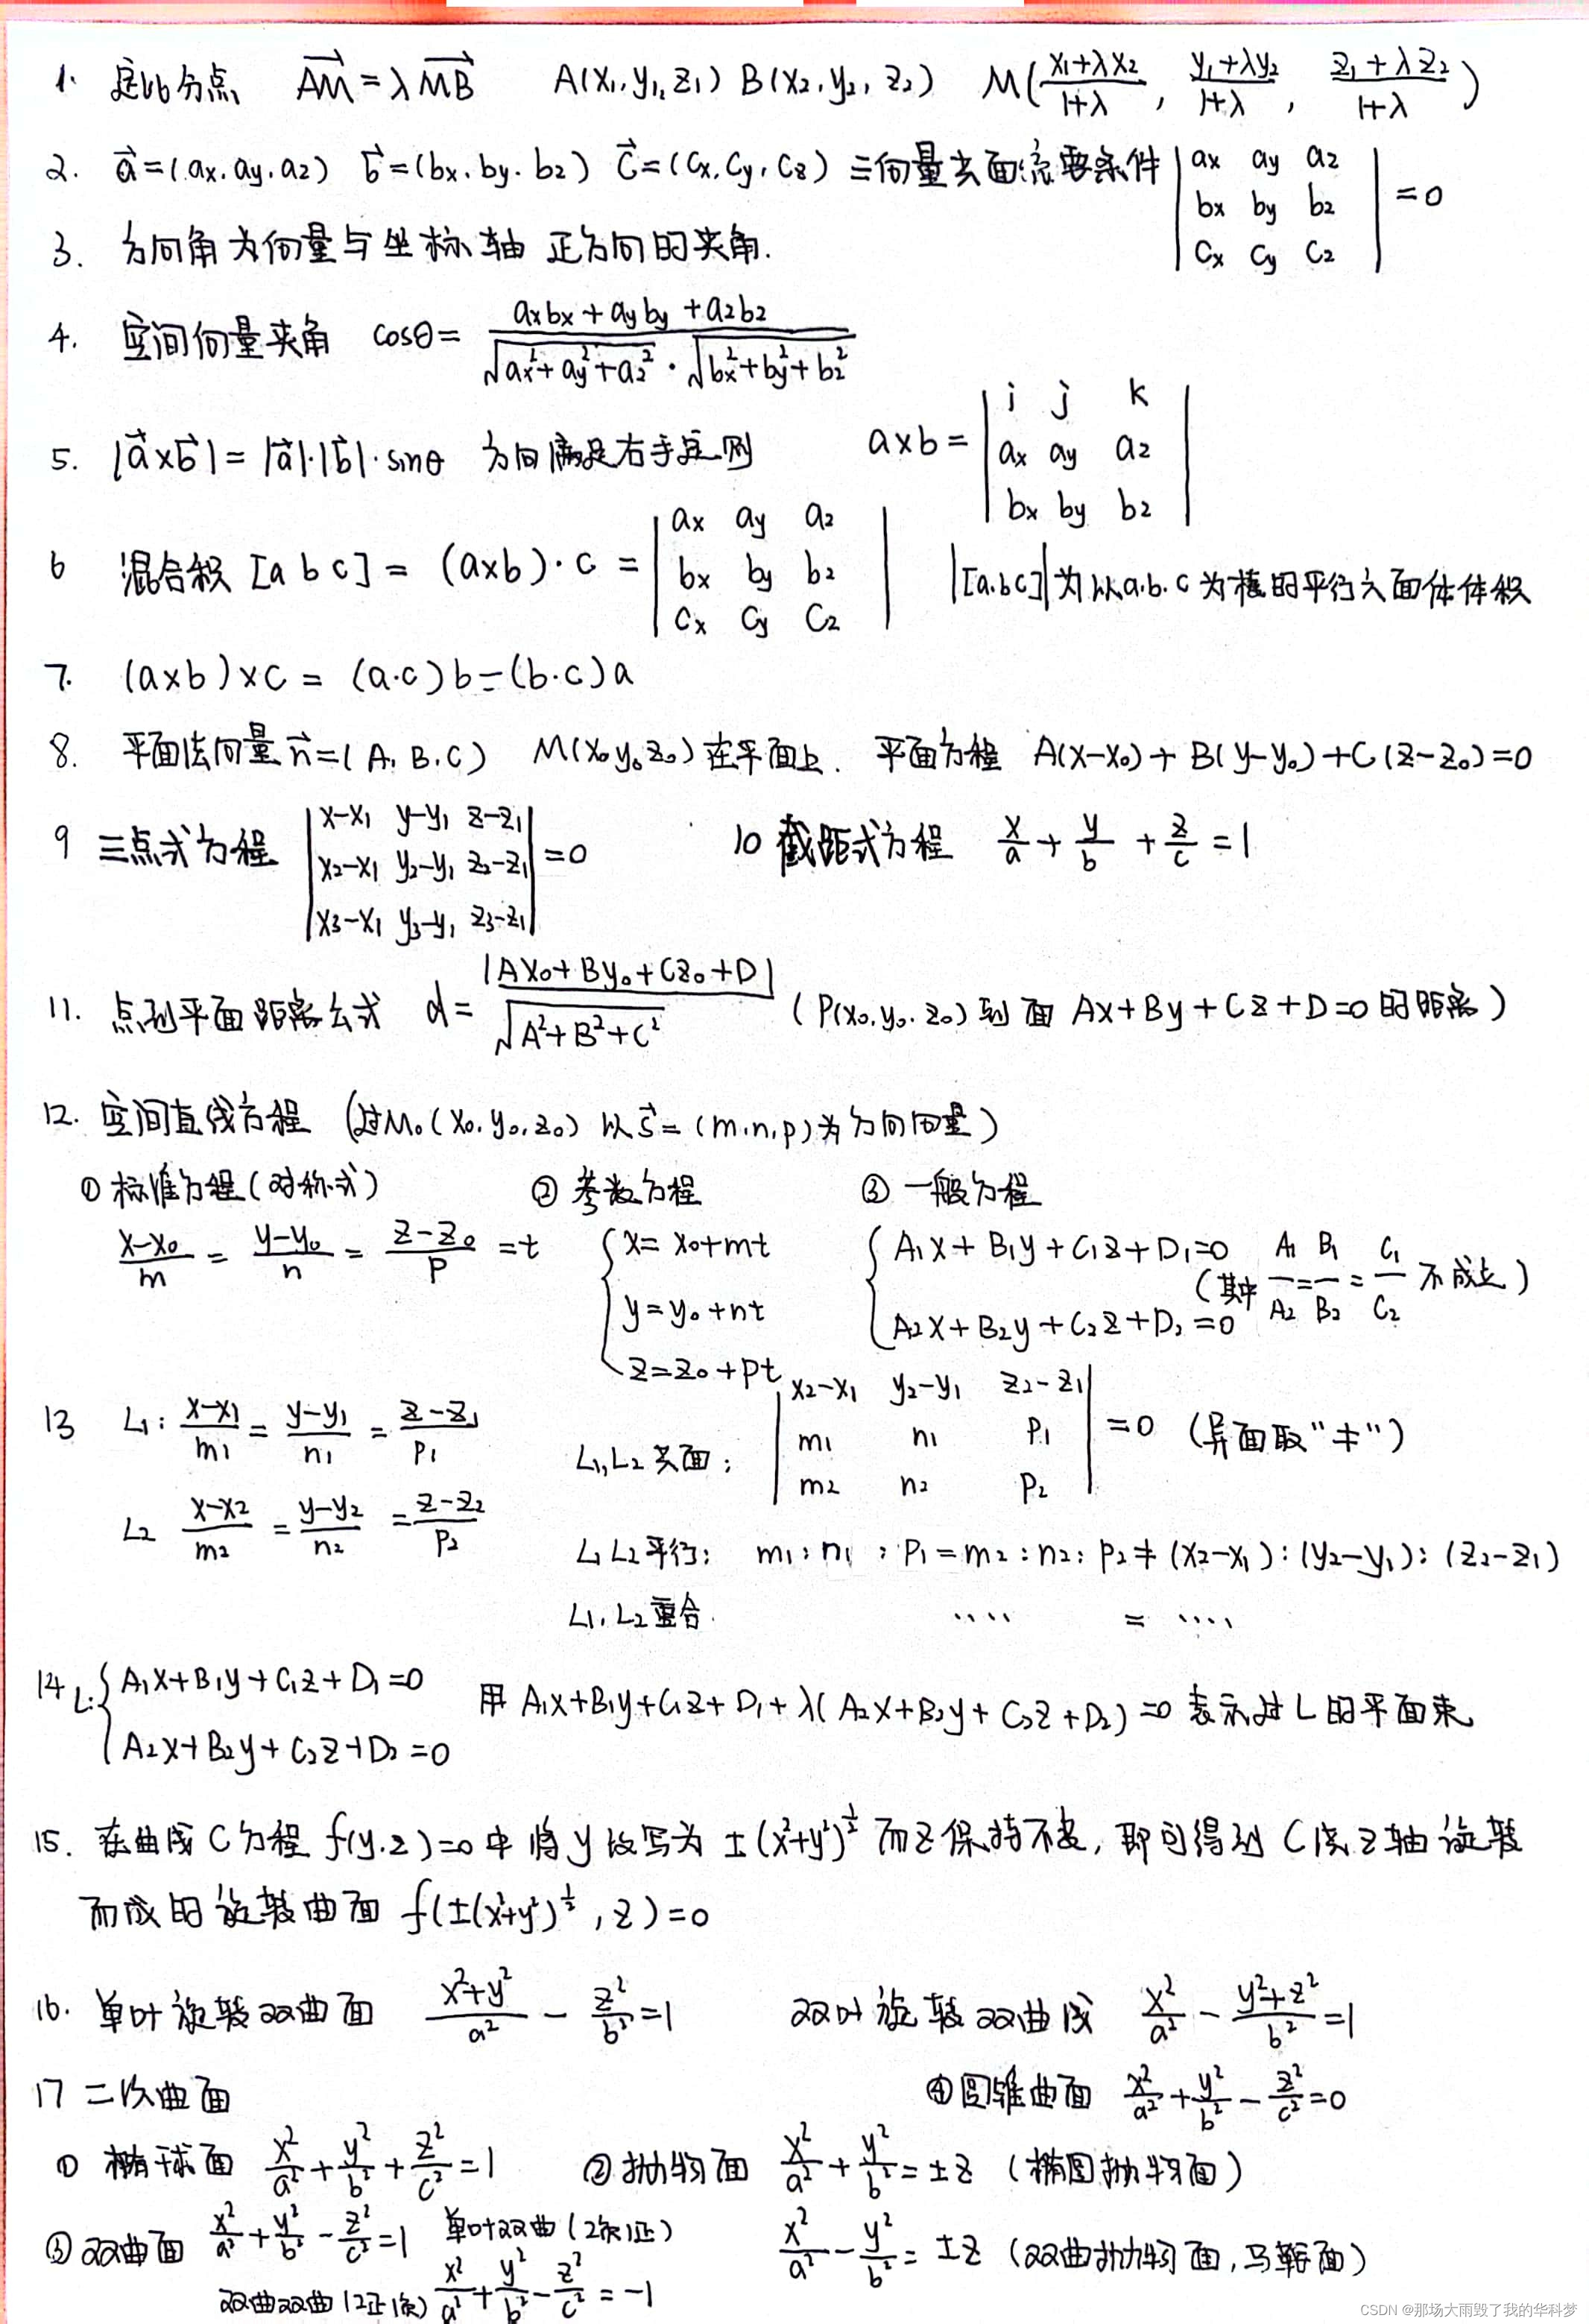 1. 定比分点 $\overrightarrow{AM}=\lambda\overrightarrow{MB}$ A(x₁,y₁,z₁) B(x₂,y₂,z₂) M($\frac{x_1+\lambda x_2}{1+\lambda}$, $\frac{y_1+\lambda y_2}{1+\lambda}$, $\frac{z_1+\lambda z_2}{1+\lambda}$)
2. $\vec{a}$=(ax,ay,az) $\vec{b}$=(bx,by,bz) $\vec{c}$=(cx,cy,cz) 三向量共面充要条件 $\begin{vmatrix} a_x & a_y & a_z \\ b_x & b_y & b_z \\ c_x & c_y & c_z \end{vmatrix}=0$
3. 方向角为向量与坐标轴正方向的夹角.
4. 空间向量夹角 $\cos\theta=\frac{a_xb_x+a_yb_y+a_zb_z}{\sqrt{a_x^2+a_y^2+a_z^2}\cdot\sqrt{b_x^2+b_y^2+b_z^2}}$
5. $|\vec{a}\times\vec{b}|=|\vec{a}|\cdot|\vec{b}|\cdot\sin\theta$ 方向满足右手定则 $a\times b=\begin{vmatrix} i & j & k \\ a_x & a_y & a_z \\ b_x & b_y & b_z \end{vmatrix}$
6 混合积 [a b c] = (a×b)·c = $\begin{vmatrix} a_x & a_y & a_z \\ b_x & b_y & b_z \\ c_x & c_y & c_z \end{vmatrix}$ |[a.b c]|为以a.b.c为棱的平行六面体体积
7. (a×b)×c = (a·c)b-(b·c)a
8. 平面法向量 $\vec{n}$=(A,B,C) M(x₀y₀z₀)在平面上. 平面方程 A(x-x₀)+B(y-y₀)+C(z-z₀)=0
9 三点式方程 $\begin{vmatrix} x-x_1 & y-y_1 & z-z_1 \\ x_2-x_1 & y_2-y_1 & z_2-z_1 \\ x_3-x_1 & y_3-y_1 & z_3-z_1 \end{vmatrix}=0$ 10 截距式方程 $\frac{x}{a}+\frac{y}{b}+\frac{z}{c}=1$
11. 点到平面距离公式 $d=\frac{|Ax_0+By_0+Cz_0+D|}{\sqrt{A^2+B^2+C^2}}$ (P(x₀,y₀,z₀)到面 Ax+By+Cz+D=0的距离)
12. 空间直线方程 (过M₀(x₀,y₀,z₀) 以$\vec{s}$=(m,n,p)为方向向量)
① 标准方程(对称式) ② 参数方程 ③ 一般方程
$\frac{x-x_0}{m}=\frac{y-y_0}{n}=\frac{z-z_0}{p}=t$ $\begin{cases} x=x_0+mt \\ y=y_0+nt \\ z=z_0+pt \end{cases}$ $\begin{cases} A_1x+B_1y+C_1z+D_1=0 \\ A_2x+B_2y+C_2z+D_2=0 \end{cases}$ (其中 $\frac{A_1}{A_2}=\frac{B_1}{B_2}=\frac{C_1}{C_2}$ 不成立)
13 L₁: $\frac{x-x_1}{m_1}=\frac{y-y_1}{n_1}=\frac{z-z_1}{p_1}$ L₁,L₂共面: $\begin{vmatrix} x_2-x_1 & y_2-y_1 & z_2-z_1 \\ m_1 & n_1 & p_1 \\ m_2 & n_2 & p_2 \end{vmatrix}=0$ (异面取"≠")
L₂ $\frac{x-x_2}{m_2}=\frac{y-y_2}{n_2}=\frac{z-z_2}{p_2}$ L₁L₂平行: m₁:n₁:p₁=m₂:n₂:p₂≠(x₂-x₁):(y₂-y₁):(z₂-z₁)
L₁,L₂重合. .... = ....
14 L: $\begin{cases} A_1x+B_1y+C_1z+D_1=0 \\ A_2x+B_2y+C_2z+D_2=0 \end{cases}$ 用 A₁x+B₁y+C₁z+D₁+λ(A₂x+B₂y+C₂z+D₂)=0 表示过L的平面束
15. 在曲线C方程 f(y.z)=0中将y改写为 ±(x²+y²)^½ 而z保持不变, 即可得到C绕z轴旋转
而成的旋转曲面 f(±(x²+y²)^½, z)=0
16. 单叶旋转双曲面 $\frac{x^2+y^2}{a^2}-\frac{z^2}{b^2}=1$ 双叶旋转双曲线 $\frac{x^2}{a^2}-\frac{y^2+z^2}{b^2}=1$
17 二次曲面 ④圆锥曲面 $\frac{x^2}{a^2}+\frac{y^2}{b^2}-\frac{z^2}{c^2}=0$
① 椭球面 $\frac{x^2}{a^2}+\frac{y^2}{b^2}+\frac{z^2}{c^2}=1$ ②抛物面 $\frac{x^2}{a^2}+\frac{y^2}{b^2}=\pm z$ (椭圆抛物面)
③双曲面 $\frac{x^2}{a^2}+\frac{y^2}{b^2}-\frac{z^2}{c^2}=1$ 单叶双曲 $\frac{x^2}{a^2}-\frac{y^2}{b^2}=\pm z$ (双曲抛物面,马鞍面)
双曲双曲 $\frac{x^2}{a^2}+\frac{y^2}{b^2}-\frac{z^2}{c^2}=-1$
CSDN @那场大雨毁了我的华科梦